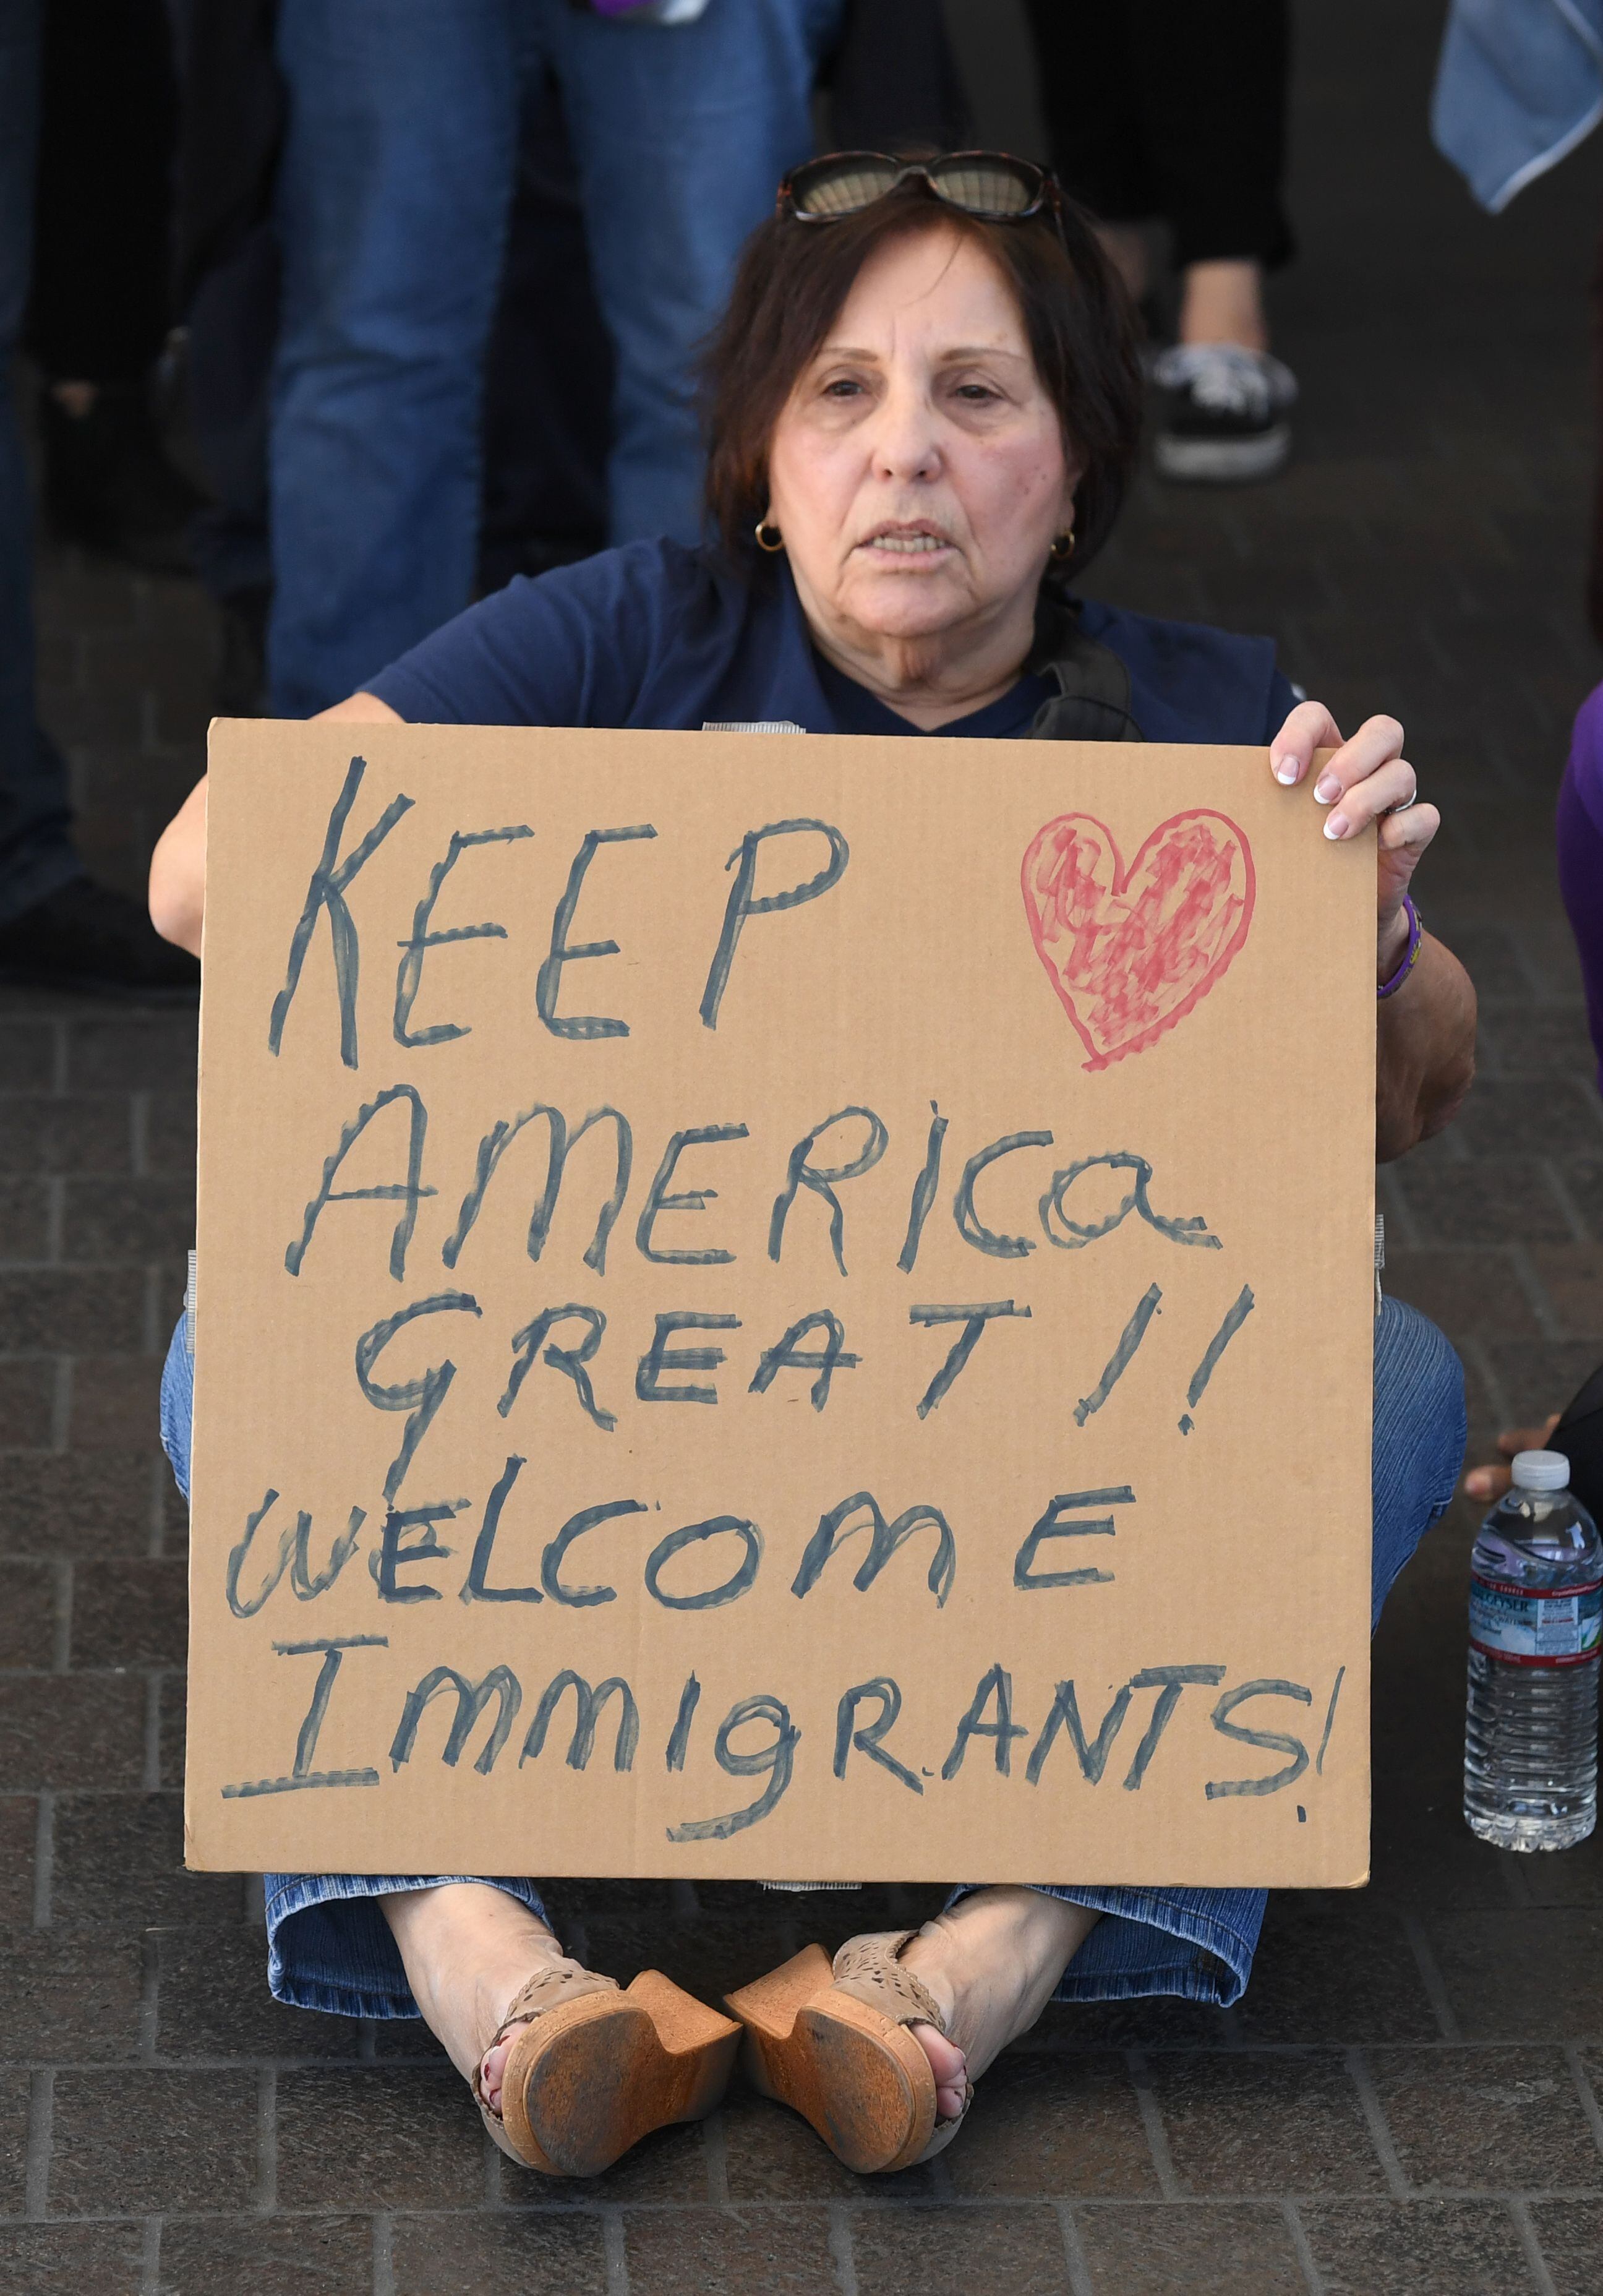 KEEP
AMERICa
GREAT!!
WELCOME
ImmIgRANTS!
GEYSER